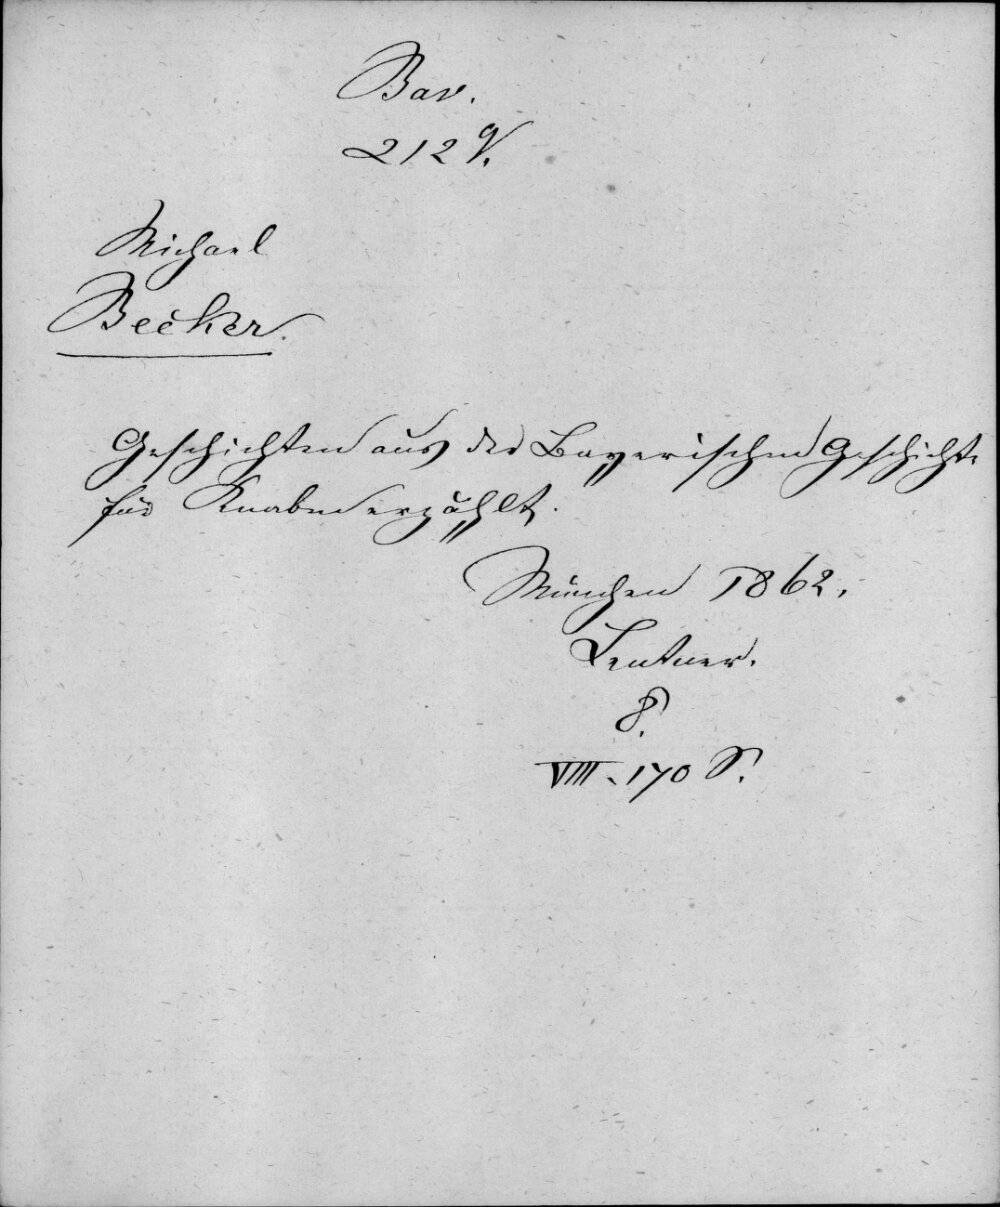 Bav.
212 q.
Michael
Becker.
Geschichten aus der Bayerischen Geschichte
für Knaben erzählt.
München 1862.
Lentner.
8.
VIII. 170 S.